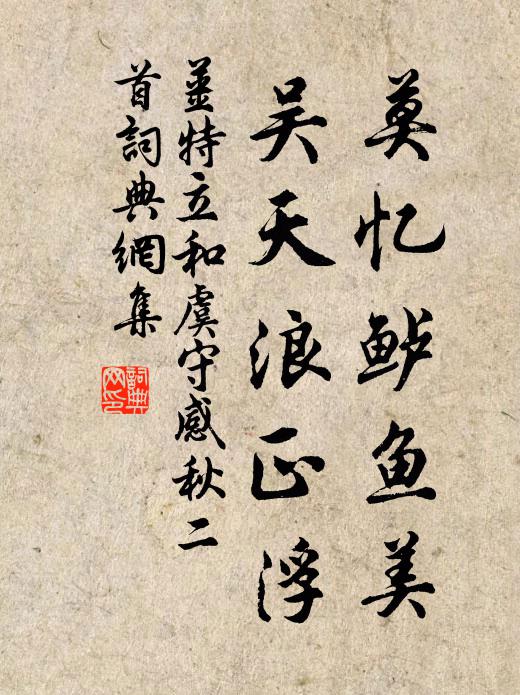 莫忆鲈鱼美
吴天浪正浮
姜特立和虞守感秋二
首詞典網集
詞典
网印